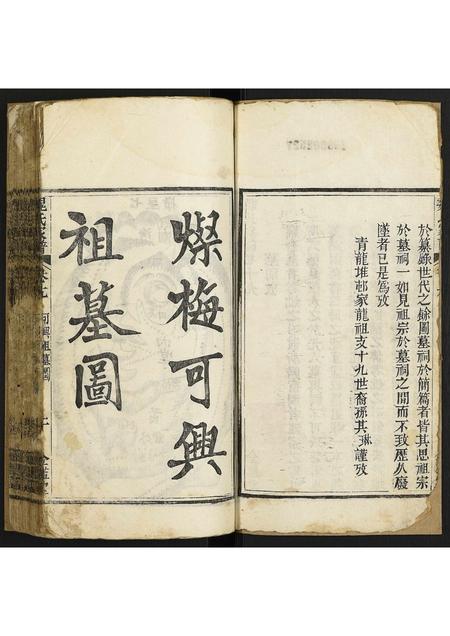 於纂錄世代之餘圖墓祠於簡篇者皆其思祖宗
於墓祠一如見祖宗於墓祠之間而不致歷久廢
墜者已是爲攷
青龍堆邨家龍祖支十九世裔孫其琳謹攷
燦梅可興
祖墓圖
氏家譜
祖墓圖